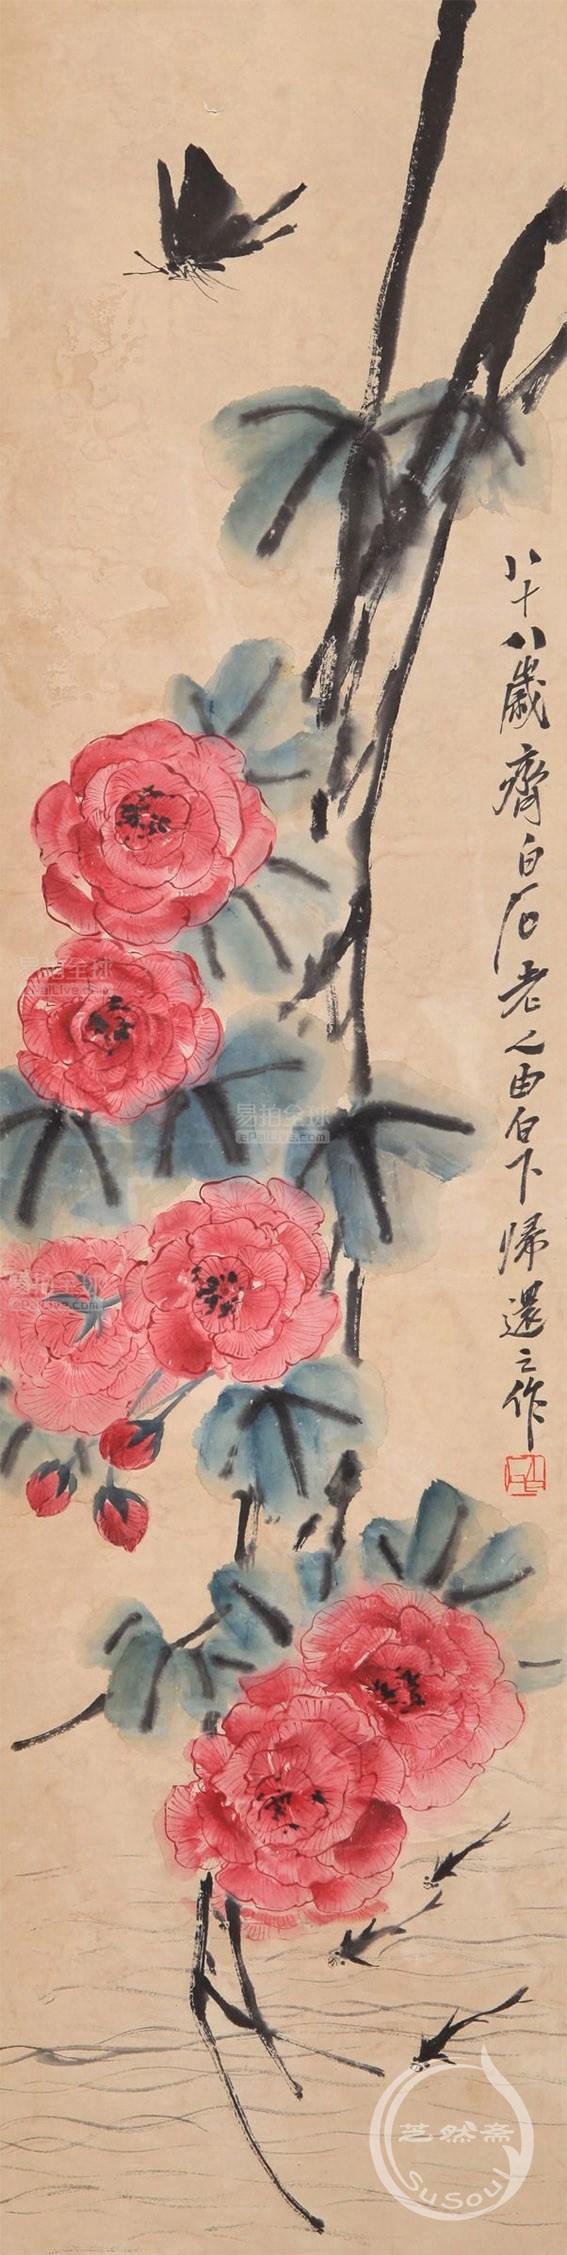 八十八歲齊白石老人由白下歸還之作
易拍全球
ePaiLive.com
易拍全球
ePaiLive.com
易拍全球
ePaiLive.com
芝然斋
SuSoul